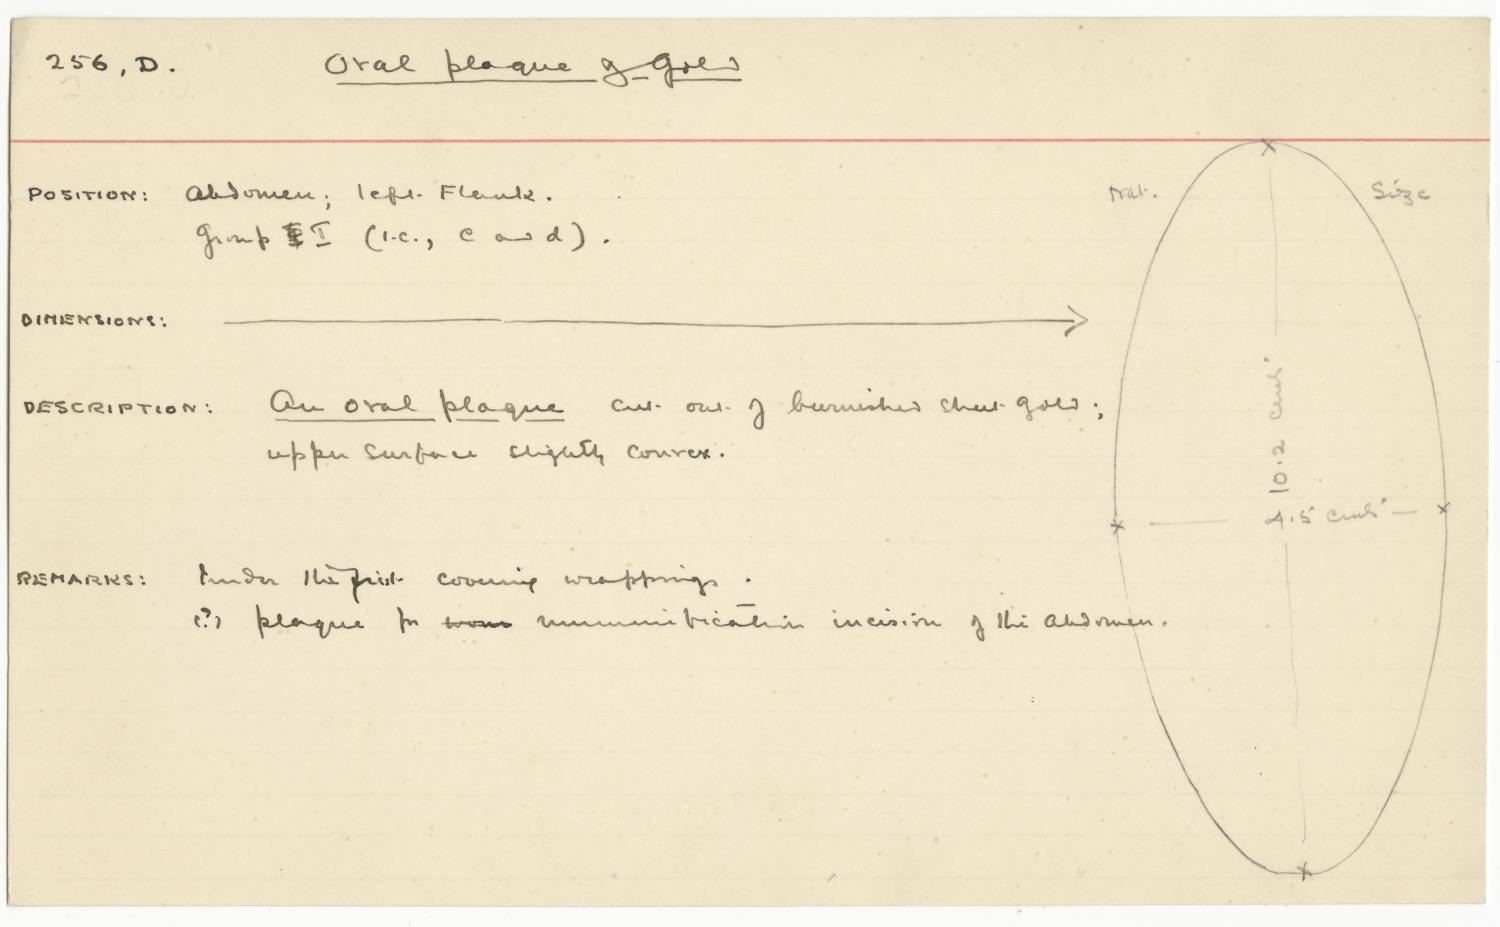 256, D. Oval plaque of Gold
POSITION: Abdomen; left Flank.
Group I (i.e., c and d).
Nat. Size
DIMENSIONS:
10.2 cents
4.5 cents
DESCRIPTION: An oval plaque cut out of burnished sheet gold;
upper surface slightly convex.
REMARKS: Under the first covering wrappings.
(?) plaque for mummification incision of the abdomen.